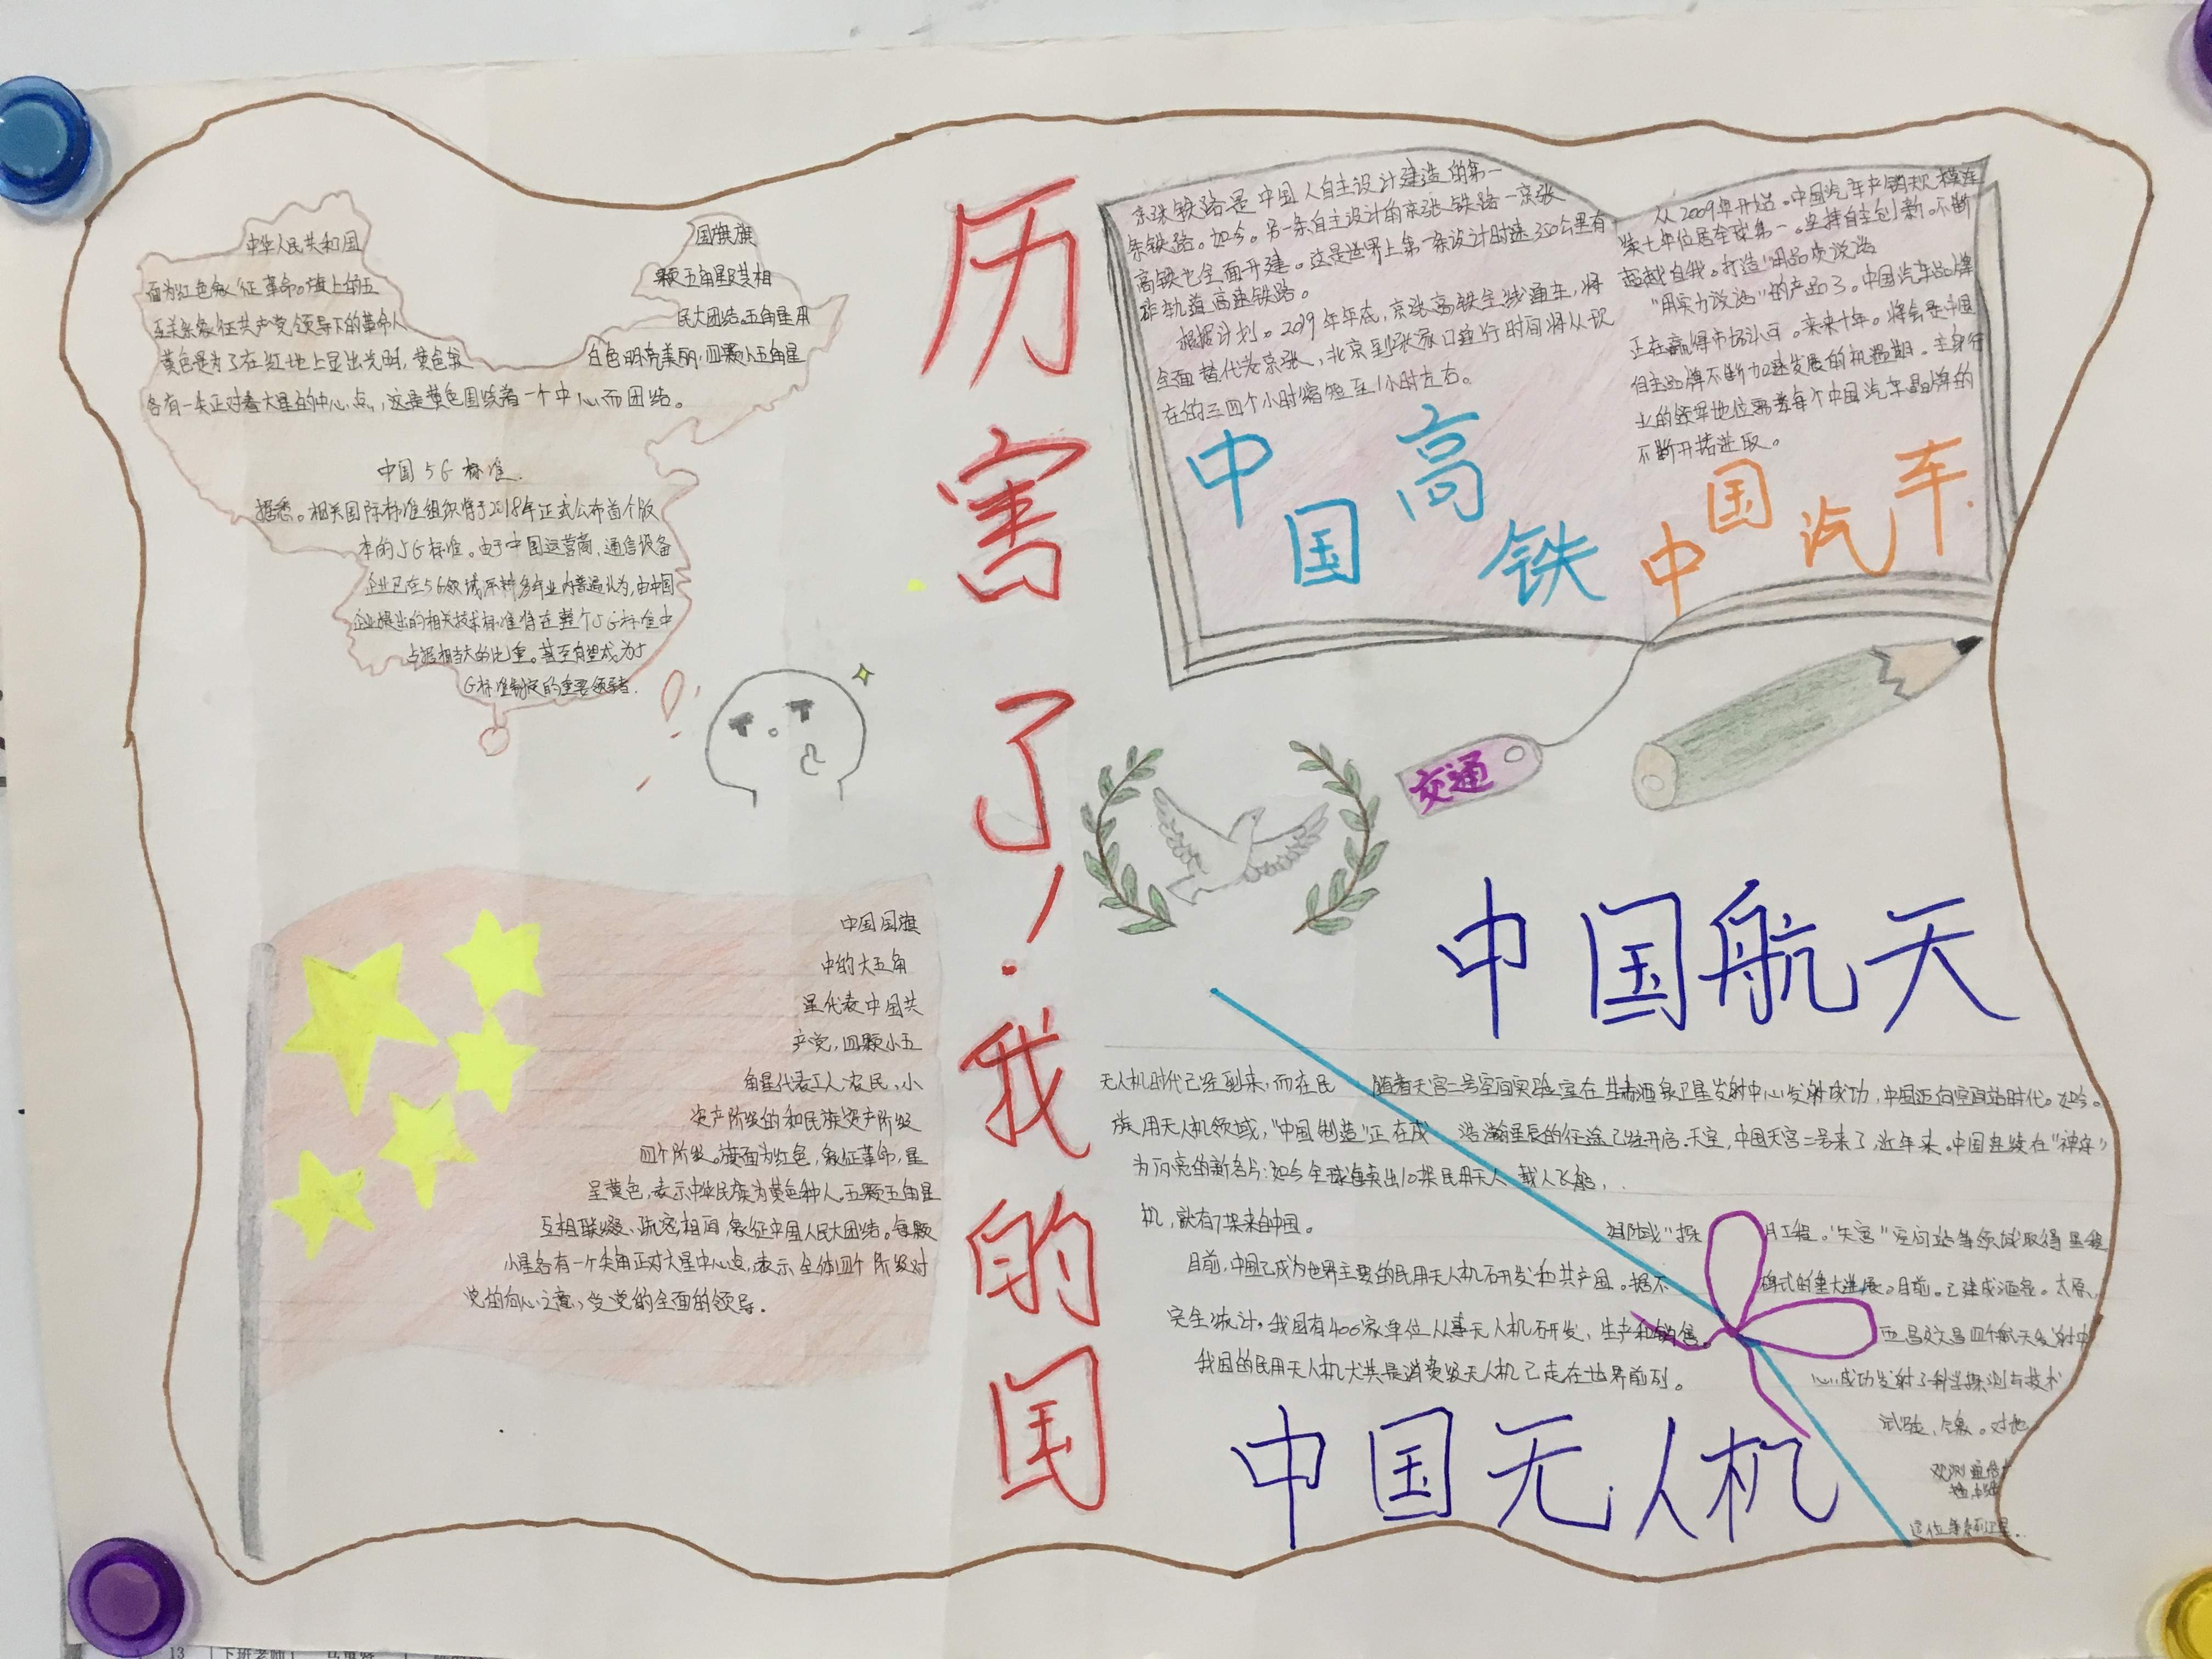 历害了！我的国
中华人民共和国
国旗旗
面为红色象征革命。旗上的五
颗五角星及其相
互关系象征共产党领导下的革命人
民大团结。五角星用
黄色是为了在红地上显出光明，黄色较
白色明亮美丽，四颗小五角星
各有一尖正对着大星的中心点，这是黄色围绕着一个中心而团结。
中国5G标准
据悉。相关国际标准组织将于2018年正式公布首个版
本的5G标准。由于中国运营商，通信设备
企业已在5G领域深耕多年业内普遍认为，由中国
企业提出的相关技术标准将在整个5G标准中
占据相当大的比重。甚至有望成为5
G标准制定的重要领导者.
中国国旗
中的大五角
星代表中国共
产党，四颗小五
角星代表工人农民、小
资产阶级的和民族资产阶级
四个阶级。旗面为红色，象征革命，星
呈黄色，表示中华民族为黄色种人。五颗五角星
互相联缀、疏密相间，象征中国人民大团结。每颗
小星各有一个尖角正对大星中心点，表示全体四个阶级对
党的向心之意，受党的全面的领导.
京张铁路是中国人自主设计建造的第一
条铁路。如今。另一条自主设计的京张铁路一京张
高铁也全面开建。这是世界上第一条设计时速350公里有
砟轨道高速铁路。
根据计划。2019年年底，京张高铁全线通车，将
全面替代老京张，北京到张家口运行时间将从现
在的三四个小时缩短至1小时左右。
中国高铁
从2009年开始。中国汽车产销规模连
续七年位居全球第一。坚持自主创新。不断
超越自我。打造"用品质说话
"用实力说话"的产品了。中国汽车品牌
正在赢得市场认可。未来十年。将会是中国
自主品牌不断加速发展的机遇期。
业的领军地位需要每个中国汽车品牌的
不断开拓进取。
中国汽车
交通
中国航天
随着天宫二号空间实验室在甘肃酒泉卫星发射中心发射成功，中国迈向空间站时代。如今。
浩瀚星辰的征途已经开启。天宫，中国天宫二号来了，近年来。中国连续在"神舟"
载人飞船，
月工程。"天宫"空间站等领域取得里程
碑式的重大进展。目前。已建成酒泉。太原、
西昌及文昌四个航天发射中
心.成功发射了科学探测与技术
试验、气象。对地
定位等系列卫星.
无人机时代已经到来，而在民
族用无人机领域，"中国制造"正在成
为闪亮的新名片：如今全球每卖出10架民用无人
机，就有7架来自中国。
目前，中国已成为世界主要的民用无人机研发和共产国。据不
完全统计，我国有400家单位从事无人机研发，生产和销售。
我国的民用无人机尤其是消费级无人机已走在世界前列。
中国无人机
13
下班老师